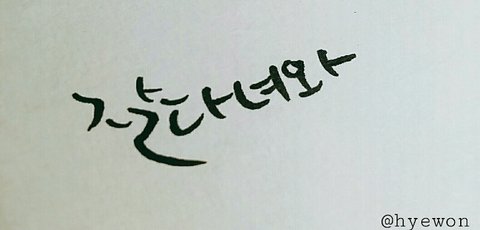 잘다녀와
@hyewon